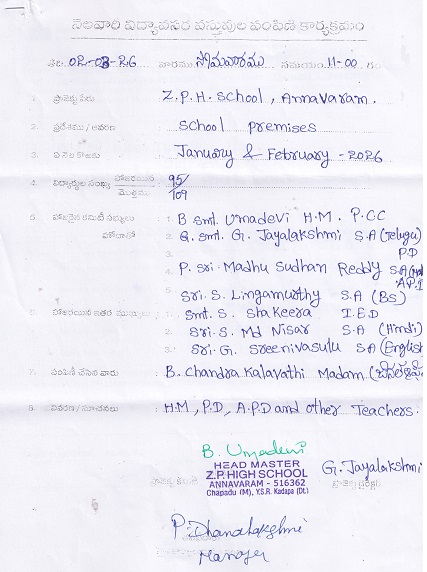 నెలవారి విద్యావసర వస్తువుల పంపిణీ కార్యక్రమం
తేది: 02-03-26 వారము సోమవారము సమయం 11-00 గం
1. ప్రాజెక్టు పేరు : Z.P.H. School, Annavaram.
2. ప్రదేశము / ఆవరణ : School premises
3. ఏ నెల కొఱకు : January & February - 2026
4. విద్యార్థుల సంఖ్య హాజరయిన 95/
మొత్తము 109
5. హాజరైన కమిటీ సభ్యులు 1. B Smt. Umadevi H.M. P.CC
2. G. Smt. G. Jayalakshmi S.A (Telugu)
3. P.D
4. P. Sri. Madhu Sudhan Reddy S.A
A.P.D
5. Sri. S. Lingamurthy S.A (BS)
6. హాజరయిన ఇతర 1. Smt. S. Shakeera I.E.D
2. Sri. S. Md Nisar S.A (Hindi)
3. Sri. G. Sreenivasulu S.A (English
7. పంపిణీ చేసిన వారు : B. Chandra Kalavathi Madam.
8. వివరణ / సూచనలు : H.M, P.D, A.P.D and other Teachers.
B. Umadevi
HEAD MASTER
Z.P. HIGH SCHOOL
ANNAVARAM - 516362
Chapadu (M), Y.S.R. Kadapa (Dt.)
G. Jayalakshmi
P. Dhanalakshmi
Manager